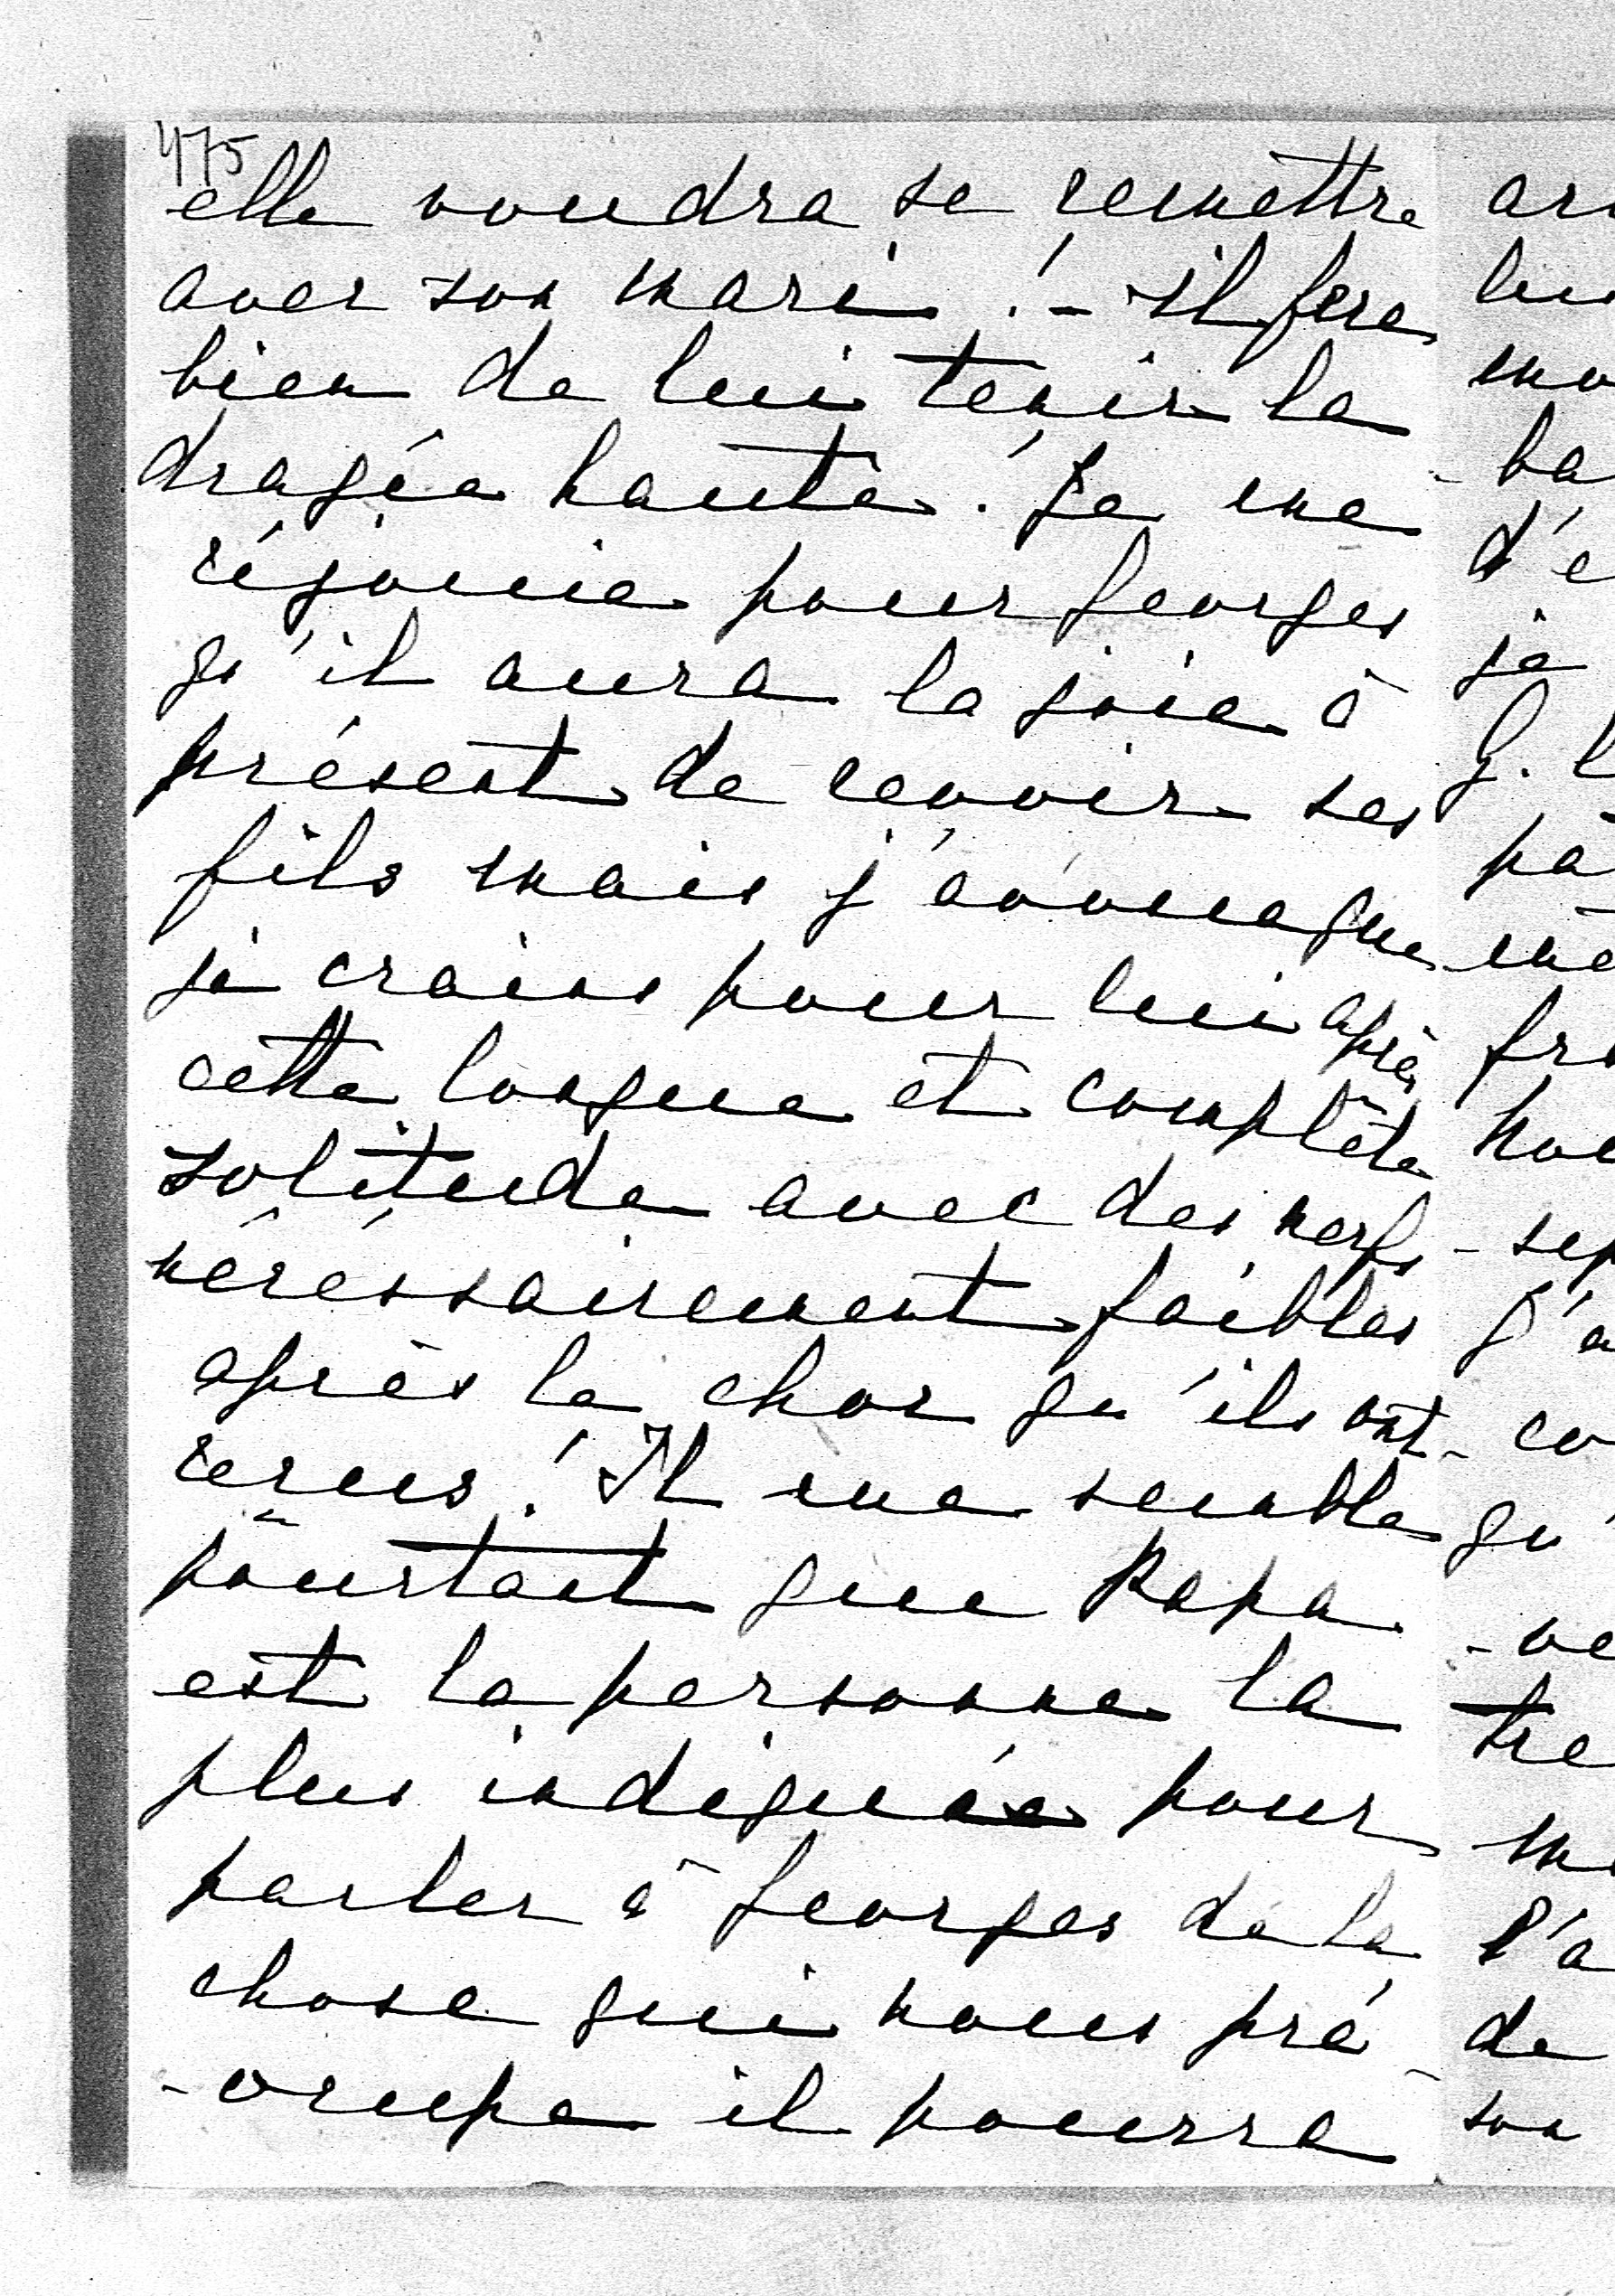 475
elle voudra se remettre
avec son mari ! - Il fera
bien de lui tenir la
dragée haute. Je me
réjouie pour Georges
qu'il aura la joie à
présent de revoir ses
fils mais j'avoue que
je crains pour lui après
cette longue et complète
solitude avec des nerfs
nécessairement faibles
après le choc qu'ils ont
recus ! Il me semble
pourtant que Papa
est la personne la
plus indiquée pour
parler à Georges de la
chose qui nous pré
-occupe il pourra
je
-ba
d'e
fra
- sep
- co
qu'
- ve
tre
l'a
de
son